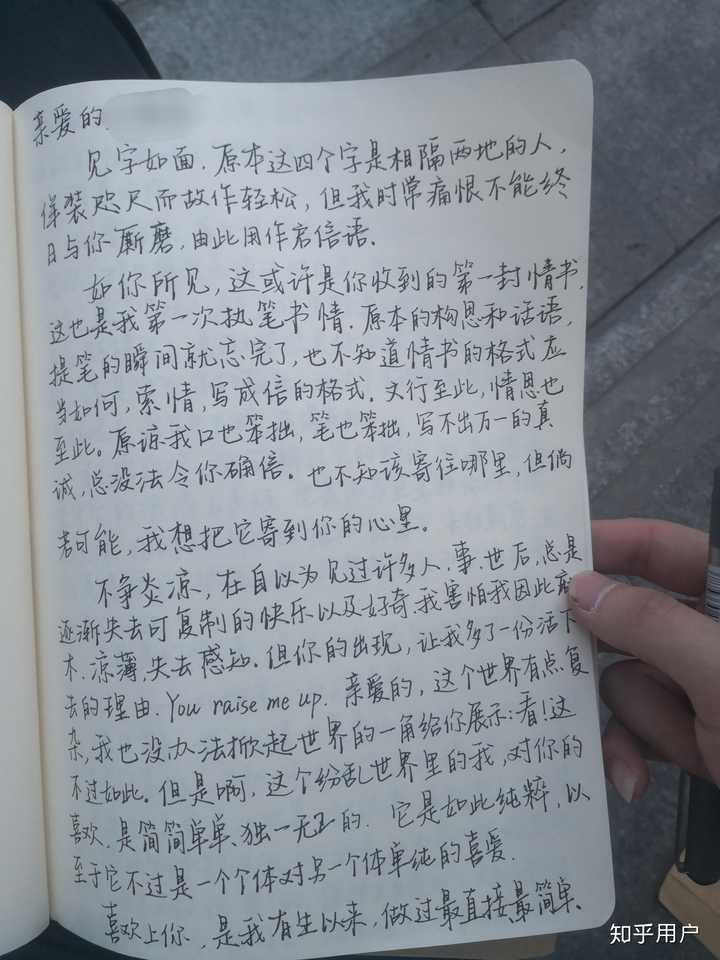 亲爱的
见字如面. 原本这四个字是相隔两地的人,
佯装咫尺而故作轻松, 但我时常痛恨不能终
日与你厮磨, 由此用作启信语.
如你所见, 这或许是你收到的第一封情书,
这也是我第一次执笔书情. 原本的构思和话语,
提笔的瞬间就忘完了, 也不知道情书的格式应
当如何, 索情, 写成信的格式. 文行至此, 情思也
至此。原谅我口也笨拙, 笔也笨拙, 写不出万一的真
诚, 总没法令你确信。也不知该寄往哪里, 但倘
若可能, 我想把它寄到你的心里。
不争炎凉, 在自以为见过许多人、事、世后, 总是
逐渐失去可复制的快乐以及好奇. 我害怕我因此
木、凉薄、失去感知. 但你的出现, 让我多了一份活下
去的理由. You raise me up. 亲爱的, 这个世界有点复
杂, 我也没办法掀起世界的一角给你展示: 看! 这
不过如此。但是啊, 这个纷乱世界里的我, 对你的
喜欢, 是简简单单、独一无二的. 它是如此纯粹, 以
至于它不过是一个个体对另一个体单纯的喜爱.
喜欢上你, 是我有生以来, 做过最直接、最简单、
知乎用户